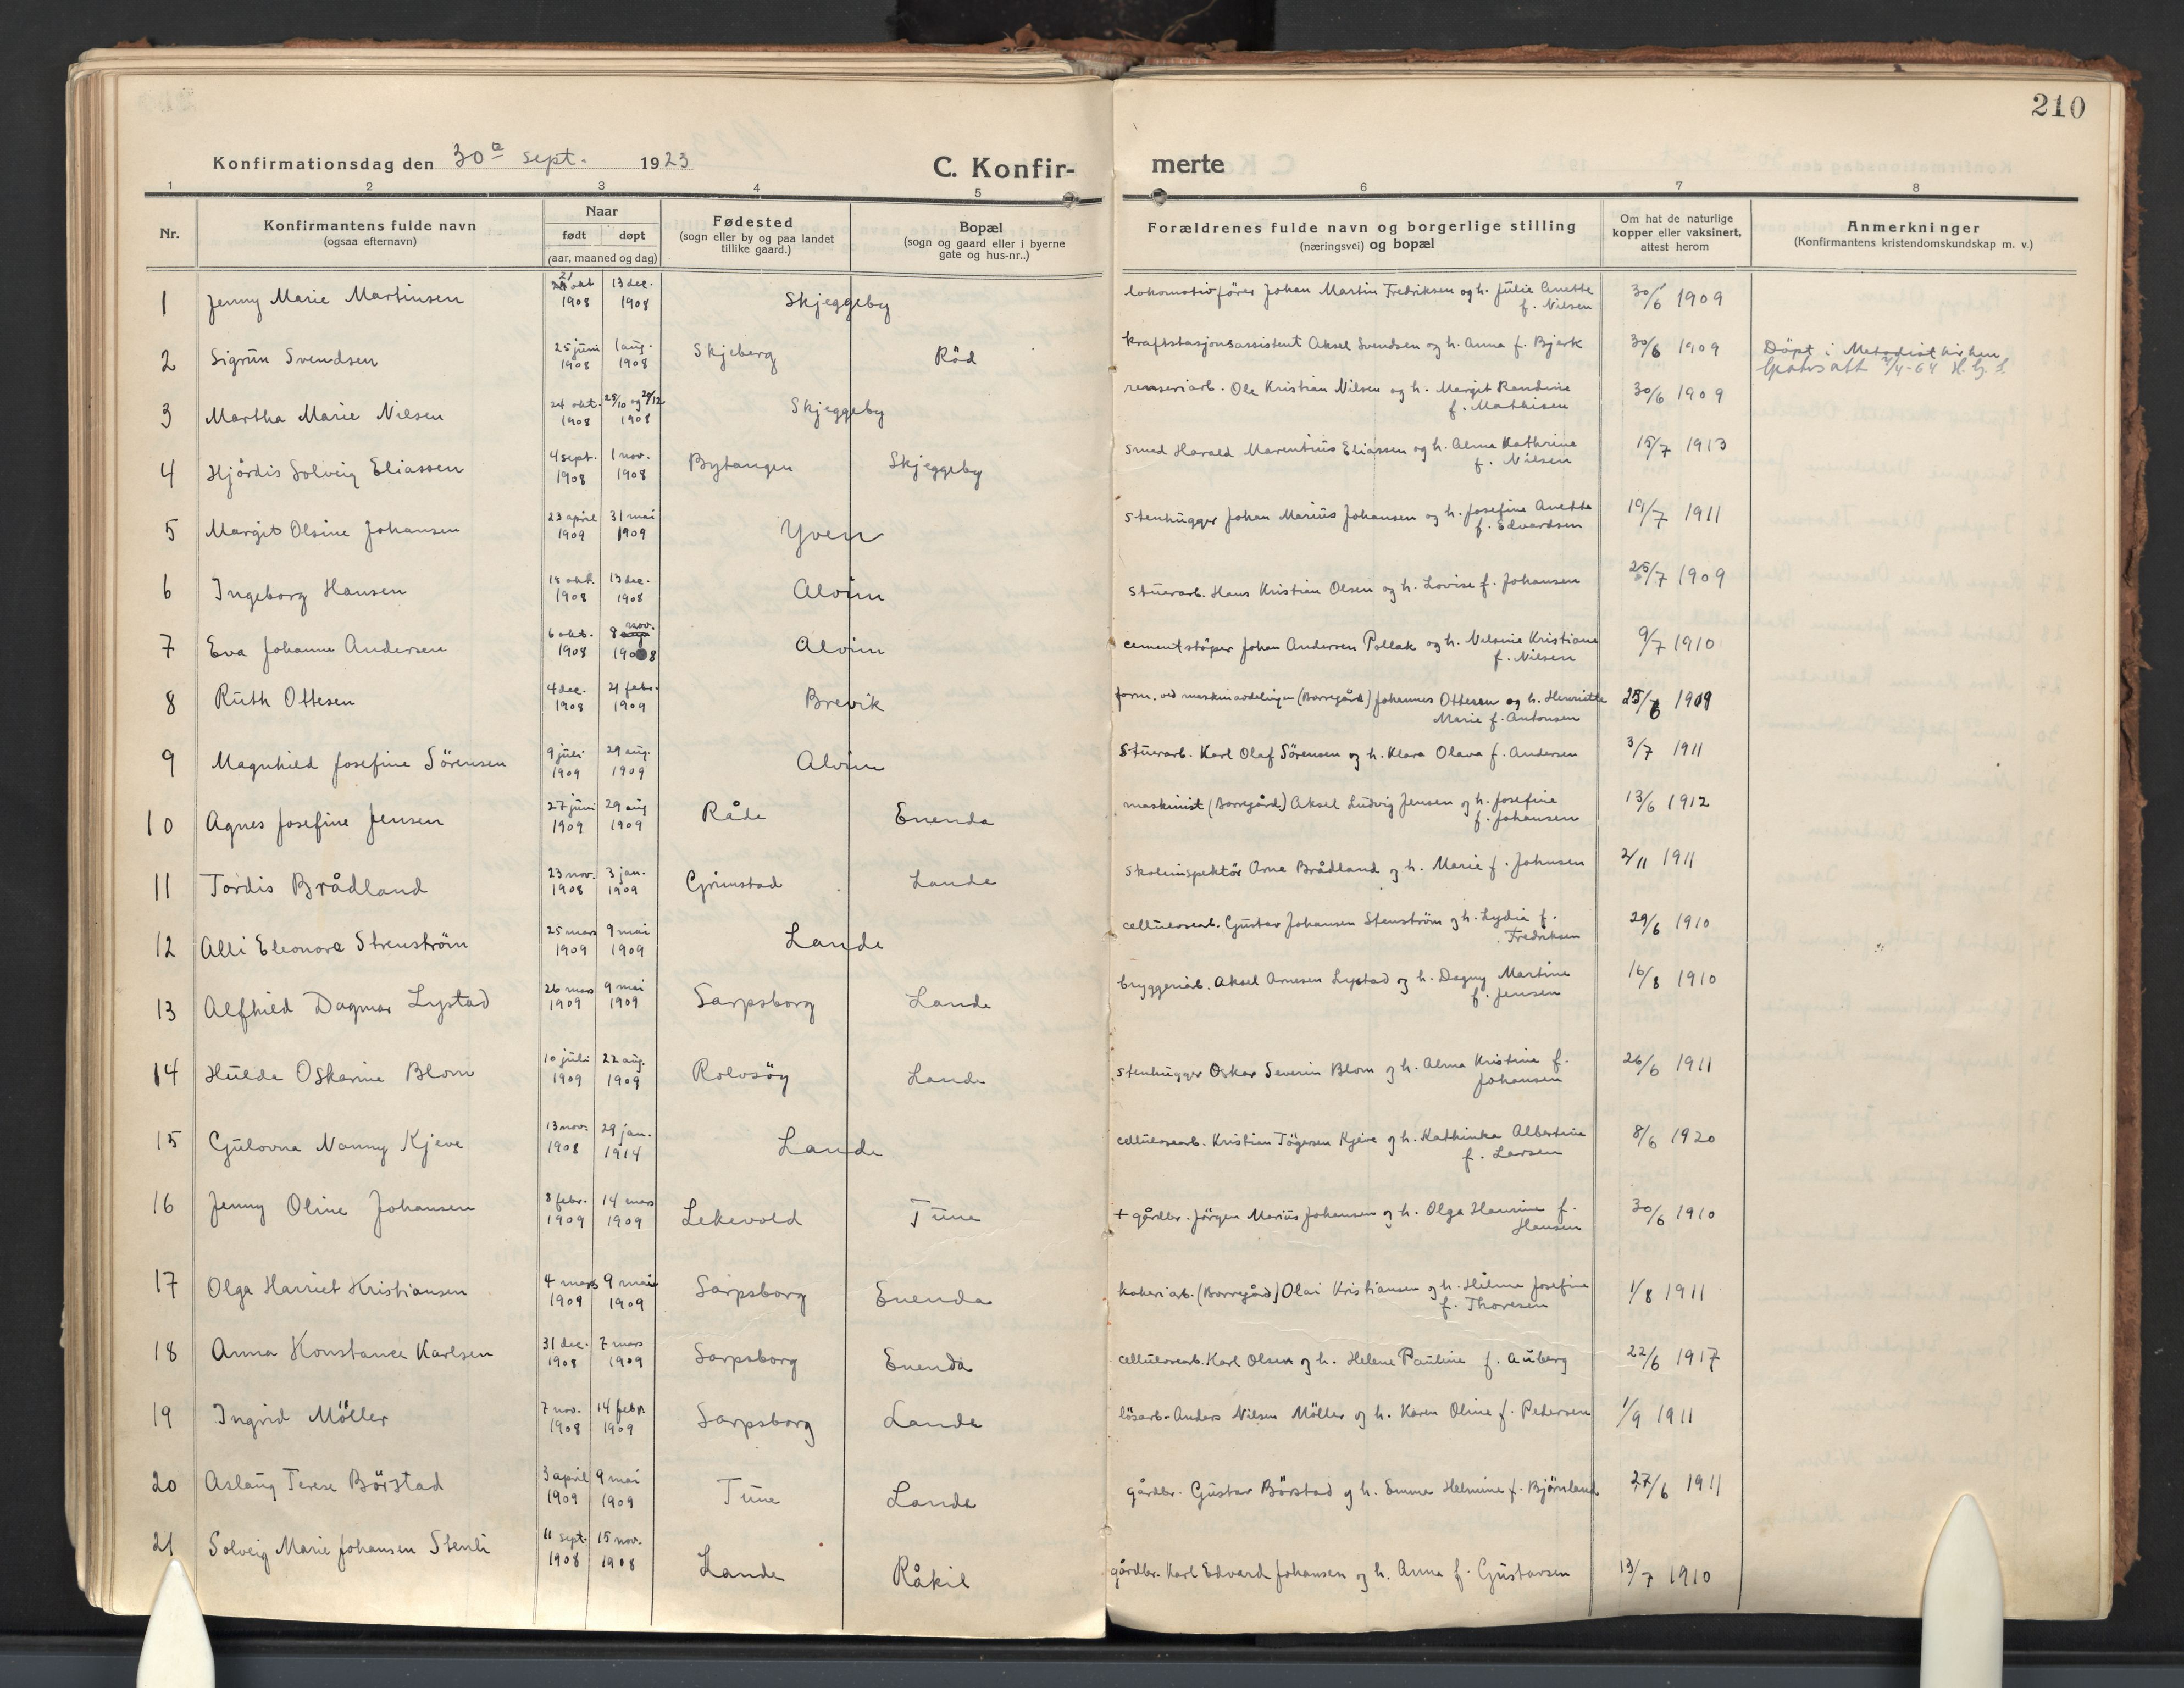 210
Konfirmationsdag den 30te sept. 1923
C. Konfir-
merte
1 2 3 4 5 6 7 8
Nr.
Konfirmantens fulde navn
(ogsaa efternavn)
Naar
født døpt
(aar, maaned og dag)
Fødested
(sogn eller by og paa landet
tillike gaard.)
Bopæl
(sogn og gaard eller i byerne
gate og hus-nr..)
Forældrenes fulde navn og borgerlige stilling
(næringsvei) og bopæl
Om hat de naturlige
kopper eller vaksinert,
attest herom
Anmerkninger
(Konfirmantens kristendomskundskap m. v.)
1 Jenny Marie Martinsen 21 okt 1908 13 dec. 1908 Skjeggeby lokomotivfører Johan Martin Fredriksen og h. Julie Anette
f. Nilsen 30/6 1909
2 Sigrun Svendsen 25 juni 1908 1 aug. 1908 Skjeberg Röd kraftstasjonsassistent Aksel Svendsen og h. Anna f. Bjerk 30/6 1909 Döpt i Metodistkirken
3 Martha Marie Nilsen 24 okt. 1908 25/10 og 26/12 1908 Skjeggeby renseriarb. Ole Kristian Nilsen og h. Margit Randine
f. Mathisen 30/6 1909
4 Hjördis Solveig Eliassen 4 sept. 1908 1 nov. 1908 Bytangen Skjeggeby smed Harald Marentius Eliassen og h. Alma Kathrine
f. Nilsen 15/7 1913
5 Margit Olsine Johansen 23 april 1909 31 mai 1909 Yven stenhugger Johan Marius Johansen og h. Josefine Anette
f. Edvardsen 19/7 1911
6 Ingeborg Hansen 18 okt. 1908 13 dec. 1908 Alvim stuerarb. Hans Kristian Olsen og h. Lovise f. Johansen 25/7 1909
7 Eva Johanne Andersen 6 okt. 1908 8 nov. 1908 Alvim cementstöper Johan Andersen Pollak og h. Nelsine Kristiane
f. Nilsen 9/7 1910
8 Ruth Ottesen 4 dec. 1908 21 febr. 1909 Brevik form. ved maskinavdelingen (Borregård) Johannes Ottesen og h. Henriette
Marie f. Antonsen 25/6 1909
9 Magnhild Josefine Sörensen 9 juli 1909 29 aug. 1909 Alvim stuerarb. Karl Olaf Sörensen og h. Klara Olava f. Andersen 3/7 1911
10 Agnes Josefine Jensen 27 juni 1909 29 aug 1909 Råde Enenda maskinist (Borregård) Aksel Ludvig Jensen og h. Josefine
f. Johansen 13/6 1912
11 Tordis Brådland 23 nov. 1908 3 jan. 1909 Grimstad Lande skoleinspektör Arne Brådland og h. Marie f. Johnsen 2/11 1911
12 Alli Eleonora Stenström 25 mars 1909 9 mai 1909 Lande cellulosearb. Gustav Johansen Stenström og h. Lydia f.
Fredriksen 29/6 1910
13 Alfhild Dagmar Lystad 26 mars 1909 9 mai 1909 Sarpsborg Lande bryggeriarb. Aksel Arnesen Lystad og h. Dagny Martine
f. Jensen 16/8 1910
14 Hulda Oskarine Blom 10 juli 1909 22 aug. 1909 Rolvsöy Lande stenhugger Oskar Severin Blom og h. Alma Kristine f.
Johansen 26/6 1911
15 Gulovna Nanny Kjeve 13 nov. 1908 29 jan. 1914 Lande cellulosearb. Kristian Tögersen Kjeve og h. Kathinka Albertine
f. Larsen 8/6 1920
16 Jenny Oline Johansen 8 febr. 1909 14 mars 1909 Lekevold Tune + gårdbr. Jörgen Marius Johansen og h. Olga Hansine f.
Hansen 30/6 1910
17 Olga Harriet Kristiansen 4 mars 1909 9 mai 1909 Sarpsborg Enenda kokeriarb. (Borregård) Olai Kristiansen og h. Hilma Josefine
f. Thoresen 1/8 1911
18 Anna Konstance Karlsen 31 dec. 1908 7 mars 1909 Sarpsborg Enenda cellulosearb. Karl Olsen og h. Helene Pauline f. Auberg 22/6 1917
19 Ingrid Möller 7 nov. 1908 14 febr. 1909 Sarpsborg Lande lösarb. Anders Nilsen Möller og h. Karen Oline f. Pedersen 1/9 1911
20 Aslaug Terese Börstad 3 april 1909 9 mai 1909 Tune Lande gårdbr. Gustav Börstad og h. Emma Helmine f. Björnland 27/6 1911
21 Solveig Marie Johansen Stenli 11 sept. 1908 15 nov. 1908 Lande Råkil gårdbr. Karl Edvard Johansen og h. Anna f. Gustavsen 13/7 1910